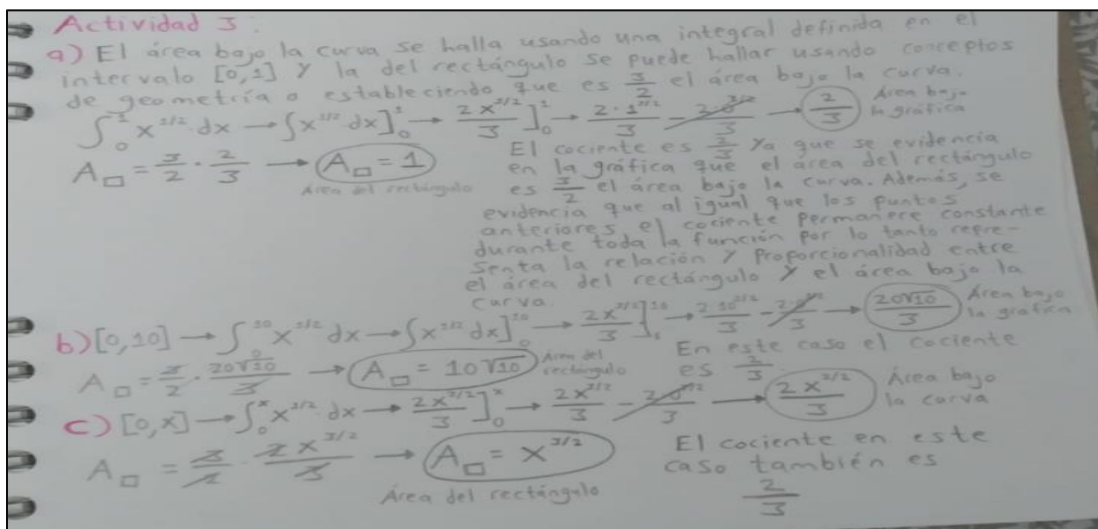 Actividad 3:
a) El área bajo la curva se halla usando una integral definida en el
intervalo [0,1] y la del rectángulo se puede hallar usando conceptos
de geometría o estableciendo que es 3/2 el área bajo la curva.
∫₀¹ x^{1/2} dx → ∫x^{1/2} dx]₀¹ → 2x^{3/2}/3]₀¹ → 2·1^{3/2}/3 - 2·0^{3/2}/3 → 2/3 Área bajo la gráfica
A□ = 3/2 · 2/3 → A□ = 1
Área del rectángulo
El cociente es 2/3 ya que se evidencia
en la gráfica que el área del rectángulo
es 3/2 el área bajo la curva. Además, se
evidencia que al igual que los puntos
anteriores el cociente permanece constante
durante toda la función por lo tanto repre-
senta la relación y proporcionalidad entre
el área del rectángulo y el área bajo la
curva.
b) [0,10] → ∫₀¹⁰ x^{1/2} dx → ∫x^{1/2} dx]₀¹⁰ → 2x^{3/2}/3]₀¹⁰ → 2·10^{3/2}/3 - 2·0^{3/2}/3 → 20√10/3 Área bajo la gráfica
A□ = 3/2 · 20√10/3 → A□ = 10√10 Área del rectángulo
En este caso el cociente
es 2/3
c) [0,x] → ∫₀ˣ x^{1/2} dx → 2x^{3/2}/3]₀ˣ → 2x^{3/2}/3 - 2·0^{3/2}/3 → 2x^{3/2}/3 Área bajo la curva
A□ = 3/2 · 2x^{3/2}/3 → A□ = x^{3/2}
Área del rectángulo
El cociente en este
caso también es
2/3